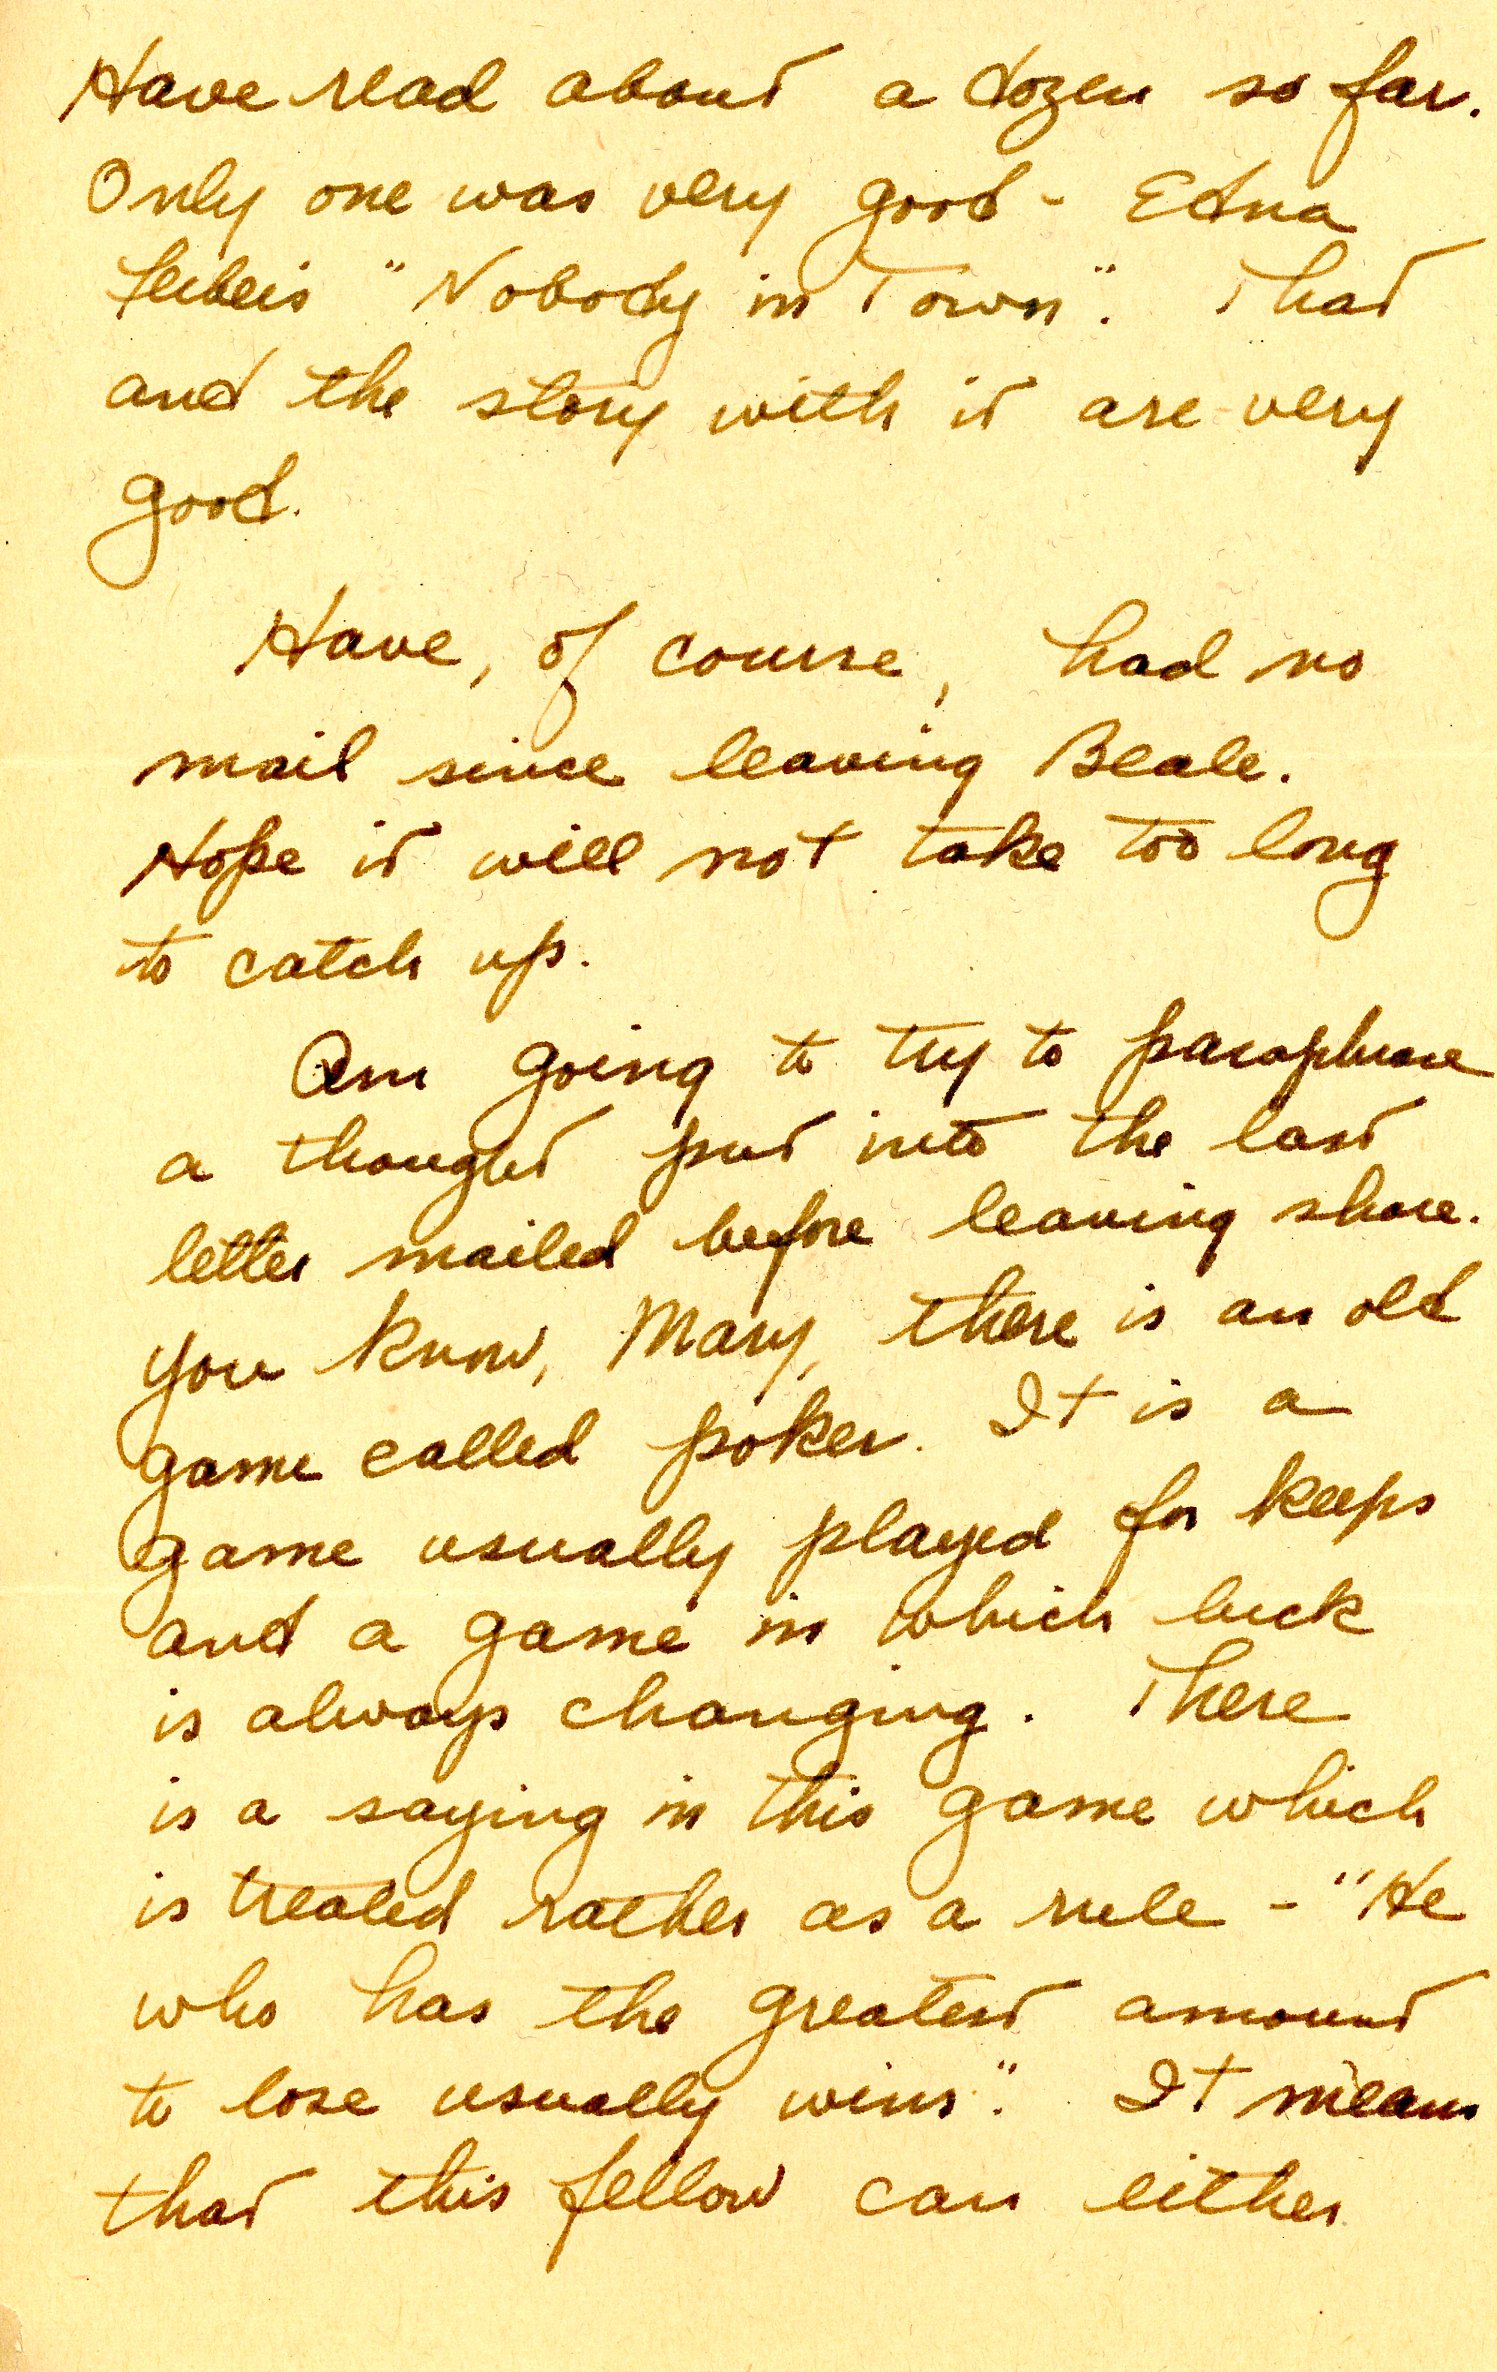 Have read about a dozen so far.
Only one was very good - Edna
Ferber's "Nobody in Town". That
and the story with it are very
good.
Have, of course, had no
mail since leaving Beale.
Hope it will not take too long
to catch up.
Am going to try to paraphrase
a thought put into the last
letter mailed before leaving shore.
You know, Mary, there is an old
game called poker. It is a
game usually played for keeps
and a game in which luck
is always changing. There
is a saying in this game which
is treated rather as a rule - "He
who has the greatest amount
to lose usually wins". It means
that this fellow can either